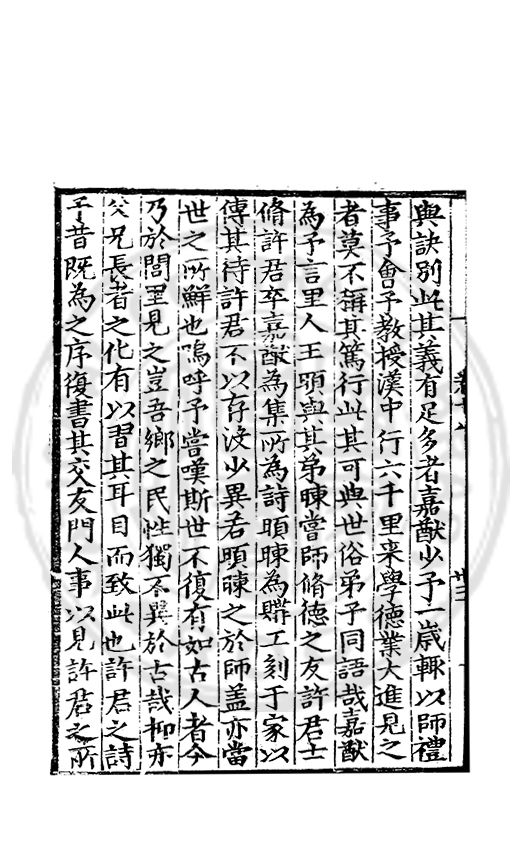 與訣別此其義有足多者嘉猷少予一歲輒以師禮
事予會予教授漢中行六千里來學德業大進見之
者莫不稱其篤行此其可與世俗弟子同語哉嘉猷
為予言里人王頤與其弟暕嘗師脩德之友許君士
脩許君卒嘉猷為集所為詩頤暕為購工刻于家以
傳其待許君不以存沒少異若頤暕之於師盖亦當
世之所鮮也嗚呼予嘗嘆斯世不復有如古人者今
乃於閭里見之豈吾鄉之民性獨不異於古哉抑亦
父兄長者之化有以習其耳目而致此也許君之詩
予昔既為之序復書其交友門人事以見許君之所